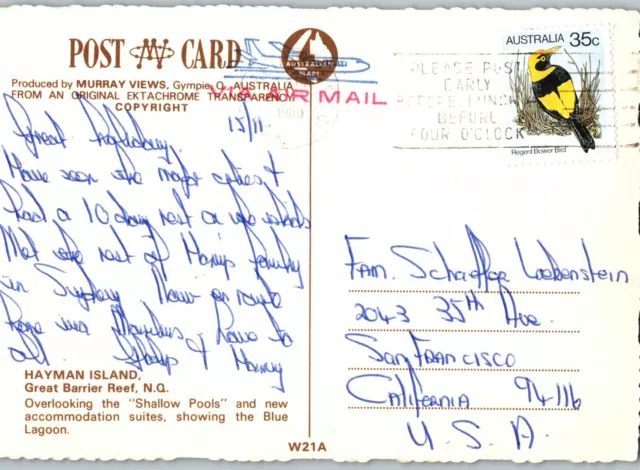 POST CARD
Produced by MURRAY VIEWS, Gympie, Q. AUSTRALIA
FROM AN ORIGINAL EKTACHROME TRANSPARENCY
COPYRIGHT
AUSTRALIAN MADE
AIR MAIL
AUSTRALIA 35c
Regent Bower Bird
PLEASE POST
EARLY
BEFORE LUNCH
BEFORE
FOUR O'CLOCK
1980
15/11
Great holiday.
Have seen the major cities &
had a 10 day rest on the islands
Met the rest of Harry's family
in Sydney Now en route
home via
all. Gladys & Harry
Fam. Schaeffer Loebenstein
2043 35th Ave.
San Francisco
California 94116
U.S.A.
HAYMAN ISLAND,
Great Barrier Reef, N.Q.
Overlooking the "Shallow Pools" and new
accommodation suites, showing the Blue
Lagoon.
W21A